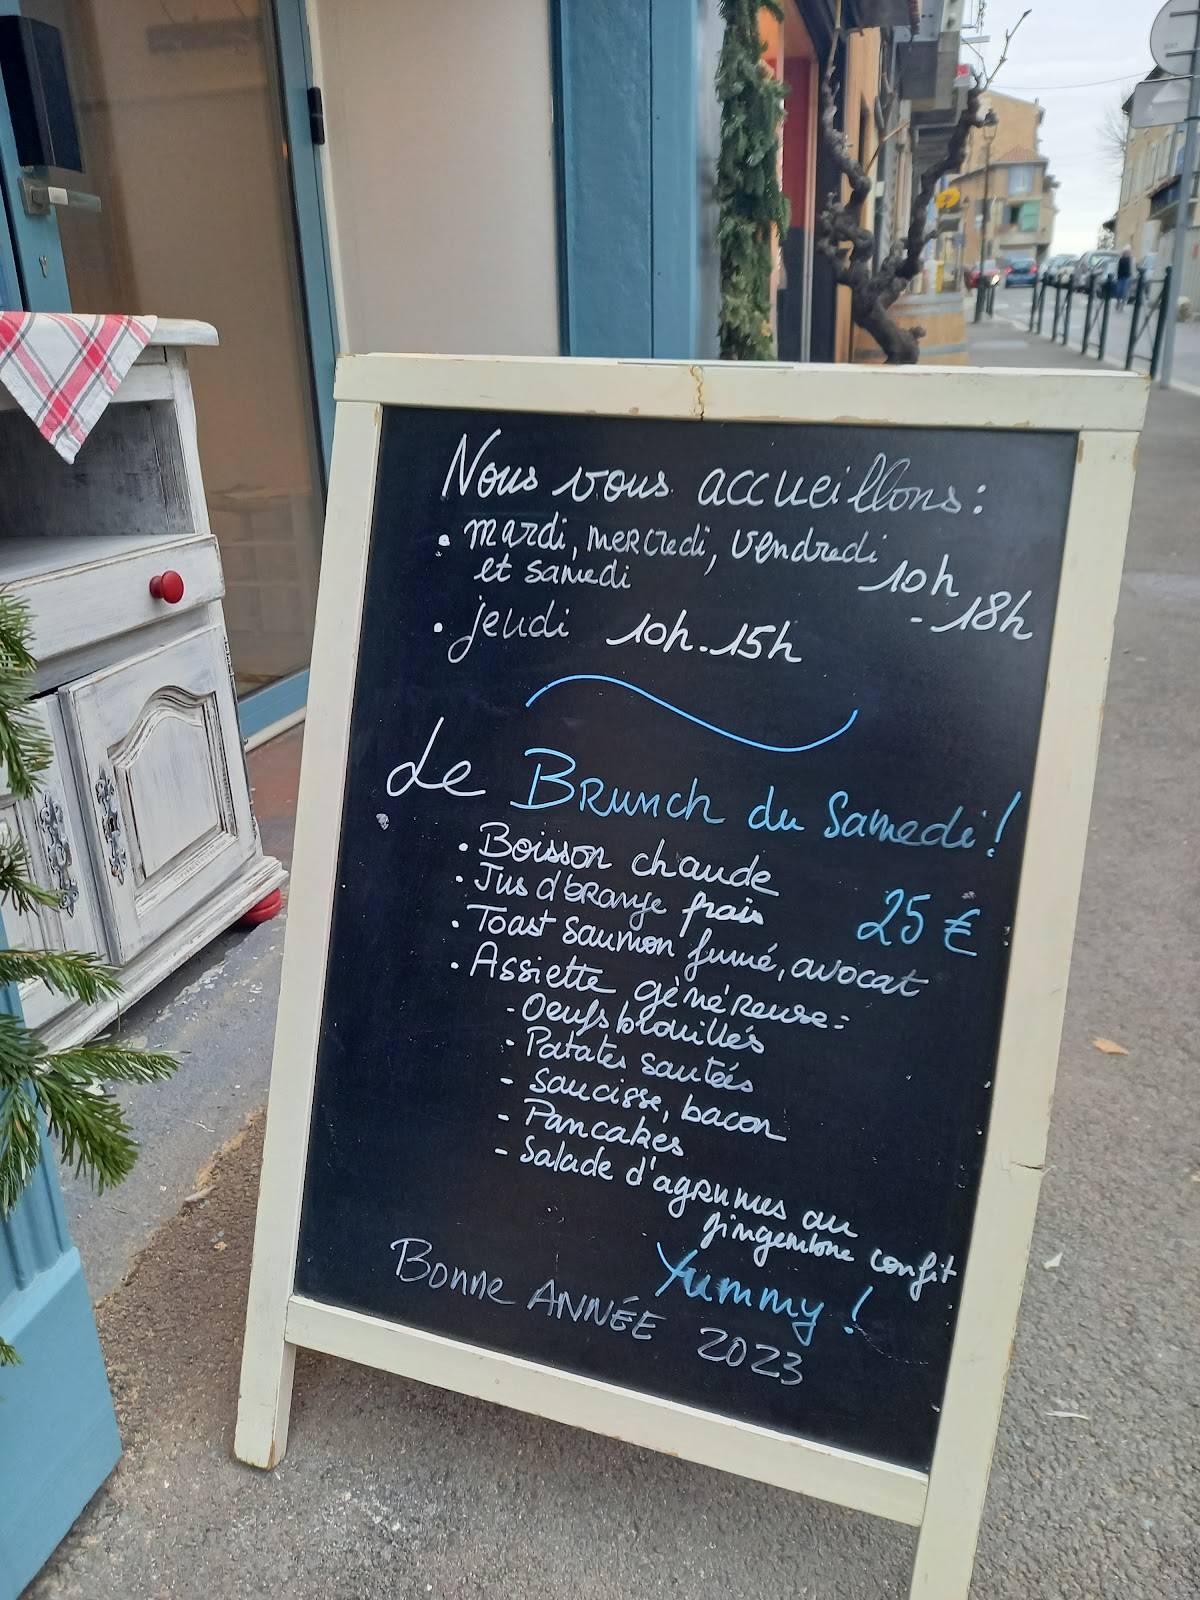 Nous vous accueillons:
• mardi, mercredi, vendredi
et samedi 10h
- 18h
• jeudi 10h-15h
Le Brunch du Samedi!
• Boisson chaude
• Jus d'orange frais 25 €
• Toast saumon fumé, avocat
• Assiette généreuse:
- Oeufs brouillés
- Patates sautées
- Saucisse, bacon
- Pancakes
- Salade d'agrumes au
gingembre confit
Yummy!
Bonne ANNÉE 2023